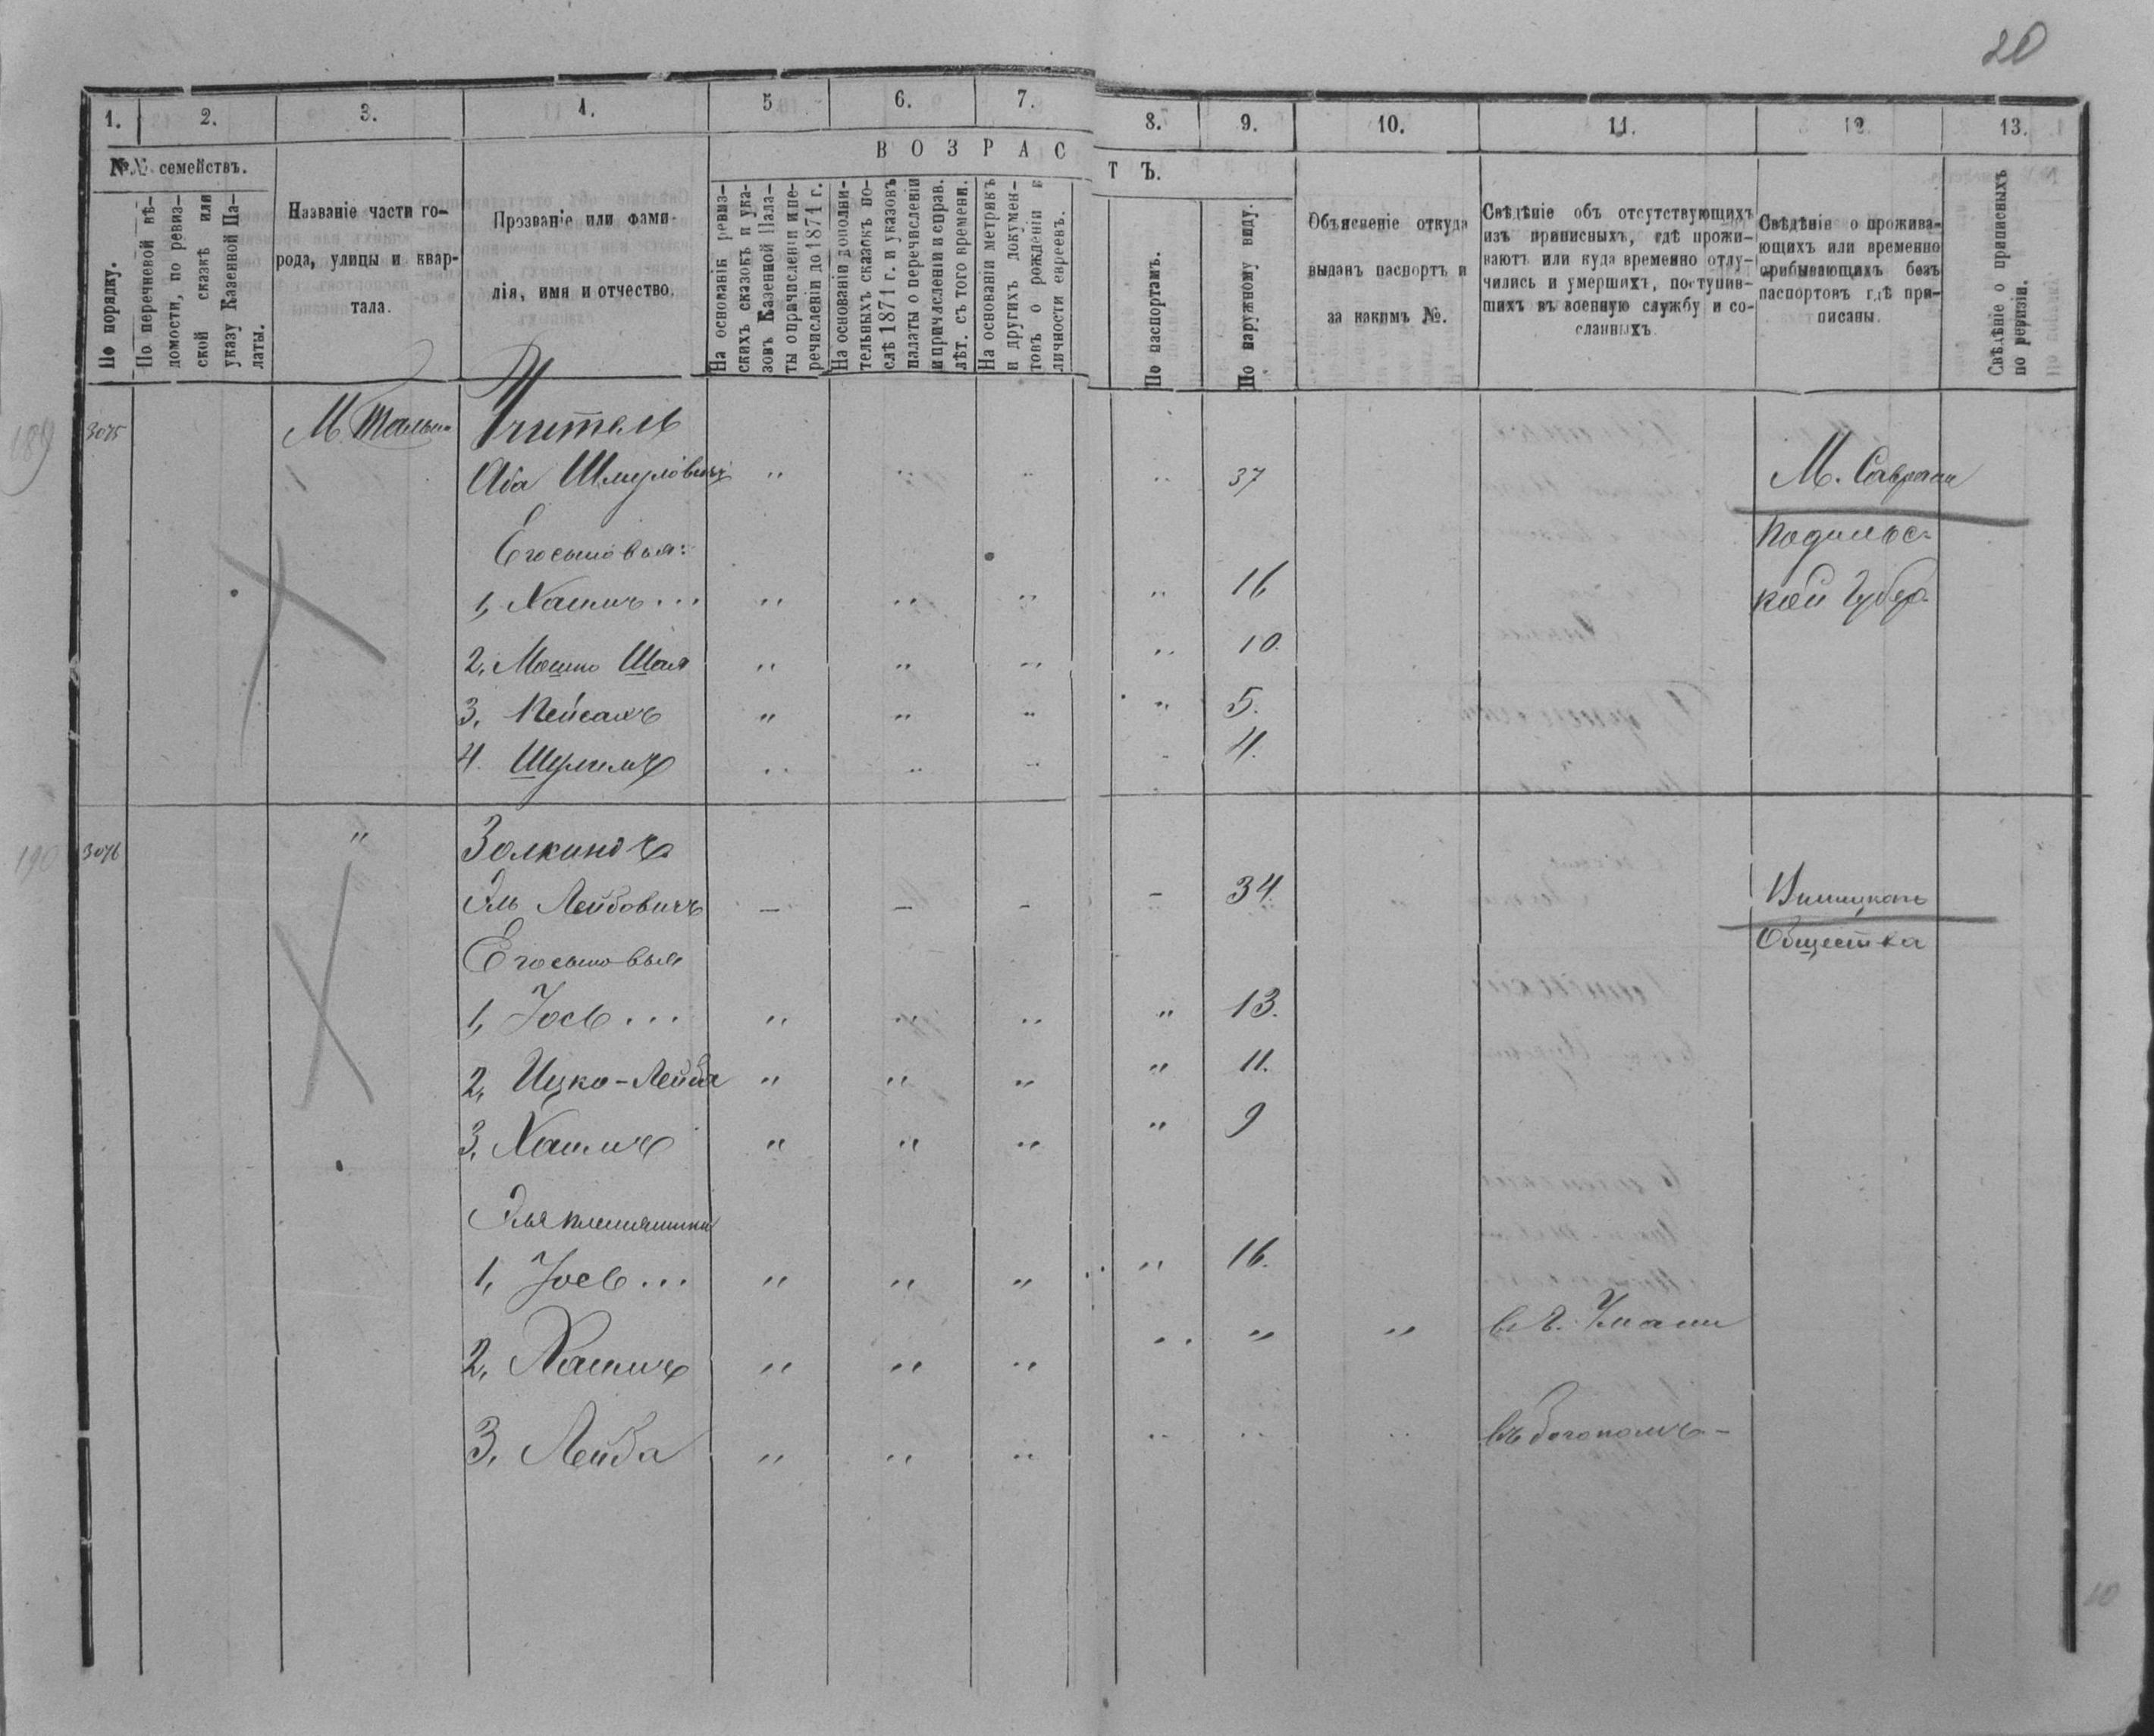 20
1. 2. 3. 4. 5 6. 7. 8. 9. 10. 11. 12. 13.
№№ семействъ.
По порядку.
По перечневой вѣ-
домости, по ревиз-
ской сказкѣ или
указу Казенной Па-
латы.
Названіе части го-
рода, улицы и квар-
тала.
Прозваніе или фами-
лія, имя и отчество.
ВОЗРАСТЪ.
На основаніи ревиз-
скихъ сказокъ и ука-
зовъ Казенной Пала-
ты о причисленіи и пе-
речисленіи до 1871 г.
На основаніи дополни-
тельныхъ сказокъ по-
слѣ 1871 г. и указовъ
палаты о перечисленіи
и причисленіи и справ.
лѣт. съ того времени.
На основаніи метрикъ
и другихъ докумен-
товъ о рожденіи и
личности евреевъ.
По паспортамъ.
По наружному виду.
Объясненіе откуда
выданъ паспортъ и
за какимъ №.
Свѣдѣніе объ отсутствующихъ
изъ приписныхъ, гдѣ прожи-
ваютъ или куда временно отлу-
чились и умершихъ, поступив-
шихъ въ военную службу и со-
сланныхъ
Свѣдѣнія о прожива-
ющихъ или временно
прибывающихъ безъ
паспортовъ гдѣ при-
писаны.
Свѣдѣніе о приписныхъ
по ревизіи.
189 3075 М. Тальн. Учитель
Аба Шмуловичъ " " " " 37 М. Саврани
Его сыновья: Подольс-
1, Хаимъ... " " " " 16 кой Губер.
2, Мошко Шая " " " " 10.
3, Пейсахъ " " " " 5.
4. Шулимъ " " " " 4.
190 3076 " Золкиндъ
Эль Лейбовичъ – – – – 34. Винницкаго
Его сыновья Общества
1, Іось... " " " " 13.
2, Ицко-Лейба " " " " 11.
3, Хаимъ " " " " 9
Эля племянники
1, Іось... " " " " 16.
2, Хаимъ " " " " " " в г. Умани
3, Лейба " " " " " " въ Богополѣ –